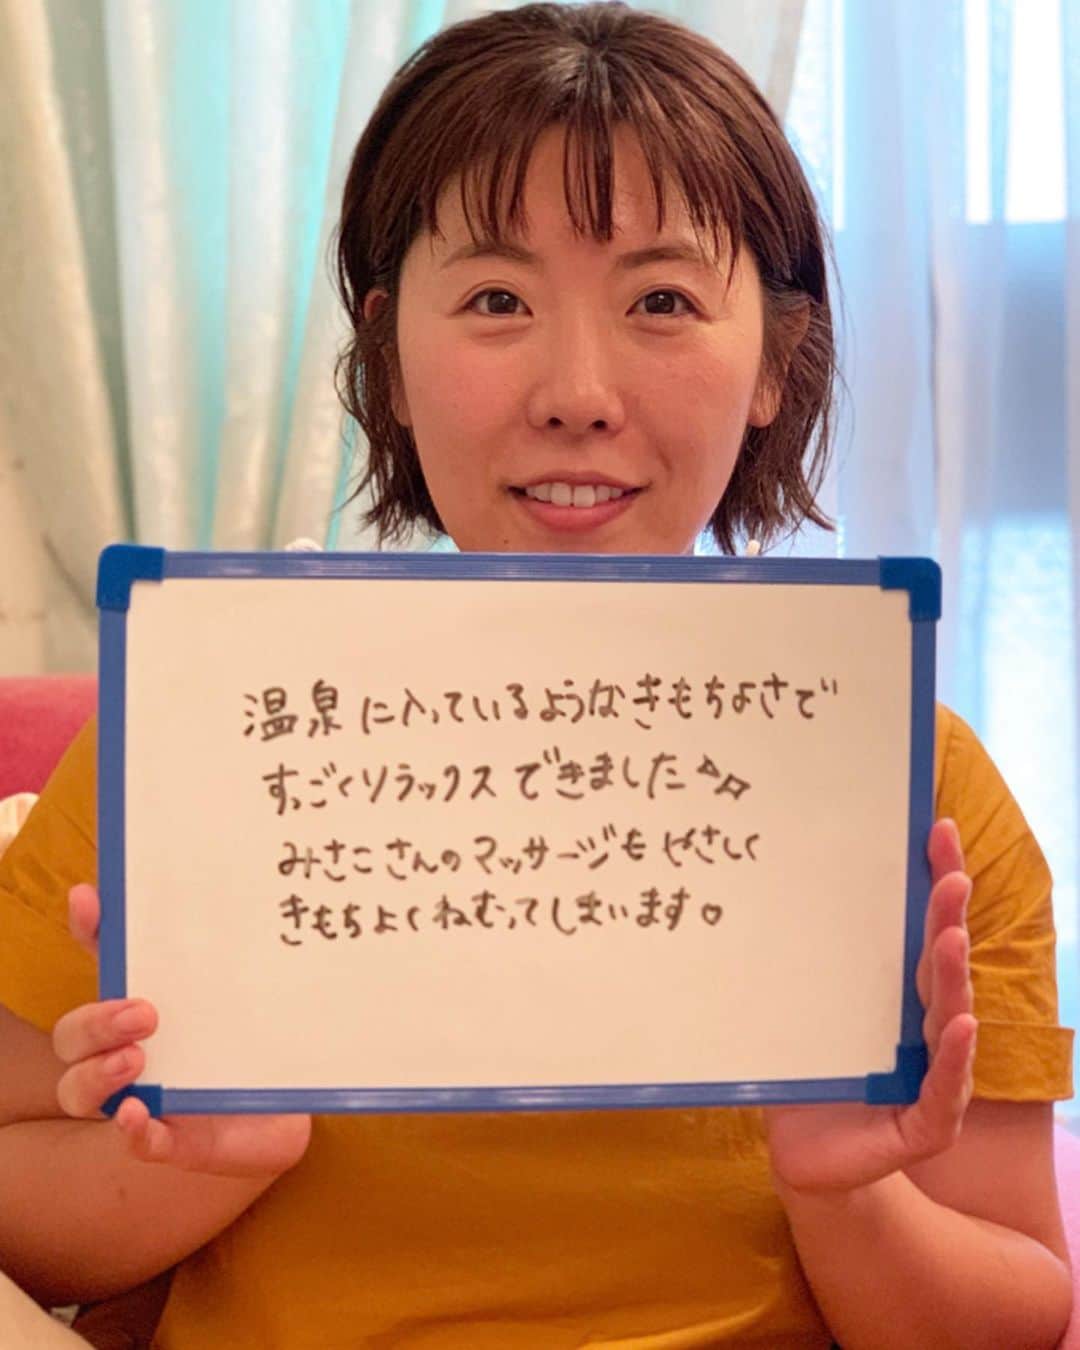 温泉に入っているようなきもちよさで
すっごくリラックスできました
みさこさんのマッサージもやさしく
きもちよくねむってしまいます♡